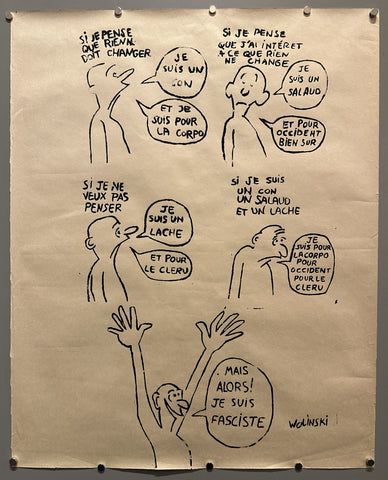 SI JE PENSE
QUE RIEN
DOIT CHANGER
JE
SUIS UN
CON
ET JE
SUIS POUR
LA CORPO
SI JE PENSE
QUE J'AI INTÉRET
A CE QUE RIEN
NE CHANGE
JE
SUIS UN
SALAUD
ET POUR
OCCIDENT
BIEN SUR
SI JE NE
VEUX PAS
PENSER
JE
SUIS UN
LACHE
ET POUR
LE CLERU
SI JE SUIS
UN CON
UN SALAUD
ET UN LACHE
JE
SUIS POUR
LA CORPO
POUR
OCCIDENT
POUR LE
CLERU
MAIS
ALORS!
JE SUIS
FASCISTE
WOLINSKI